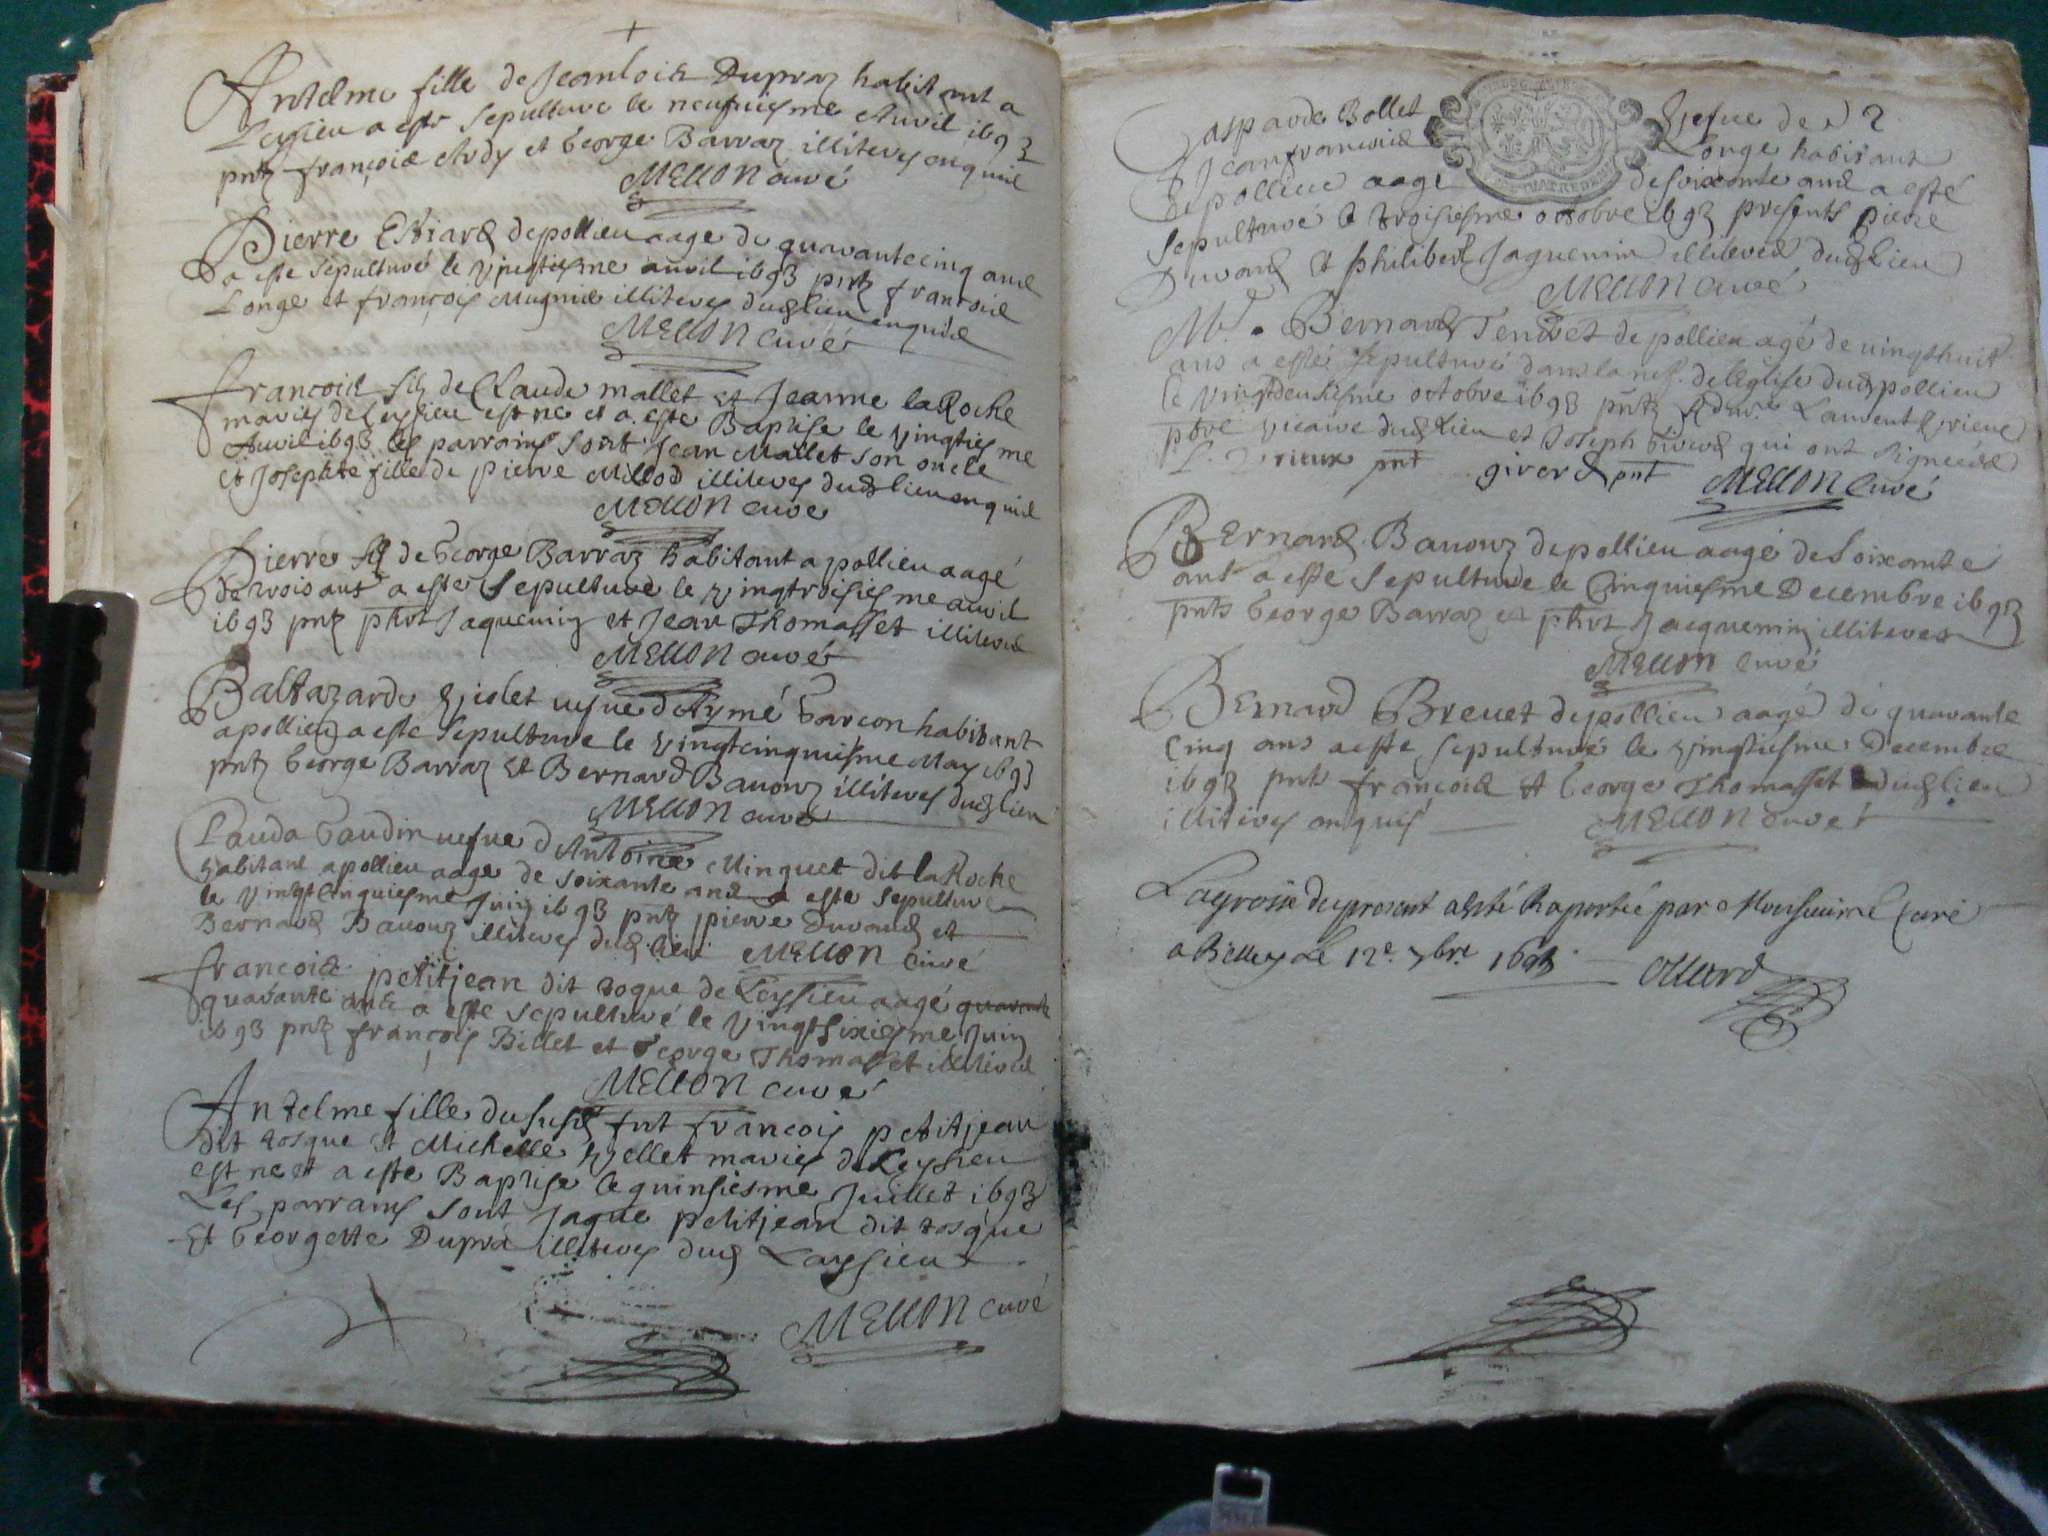 Antelme fille de Jeanlois Dupraz habitant a
Leysieu a este sepulture le neufuiesme Auvil 1693
pntz françois Ardy et George Barraz illiteres enquis
MELLON curé
Pierre de pollieu aage de quarantecinq ans
a este sepulturé le vingtiesme auvil 1693 pntz francois
Longe et françois Mugnie illiteres dudlieu enquis
MELLON curé
francois filz de Claude mallet et Jeanne laRoche
mariés de Leyssieu est né et a este Baptise le vingtiesme
Auvil 1693 les parrains sont Jean Mallet son oncle
et Josephte fille de pierre Millod illiteres dudlieu enquis
MELLON curé
Pierre filz de George Barraz habitant a pollieu aagé
de trois ans a este sepulturé le vingtroisiesme auvil
1693 pntz phbt Jaquemin et Jean Thomasset illiteres
MELLON curé
Baltazarde Violet vefue d'Aymé Garcon habitant
a pollieu a este sepulture le vingtcinquiesme May 1693
pntz George Barraz et Bernard Bauouz illiteres dudlieu
MELLON curé
Clauda Gaudin uefue d'Antoine Minguet dit laRoche
habitant a pollieu aage de soixante ans a este sepulture
le vingtcinquiesme Juin 1693 pntz pierre Duvand et
Bernard Bauouz illiteres dudlieu MELLON curé
francois petitjean dit rosque de Leyssieu aagé quarante
quarante ans a este sepulturé le vingtsixiesme Juin
1693 pntz françois Billet et George Thomasset illiteres
MELLON curé
Antelme fille du susd fnt francois petitjean
dit rosque et Michelle mariés de Leyssieu
est ne et a este Baptise le quinsiesme Juillet 1693
Les parrains sont Jaque petitjean dit rosque
Et Georgette Dupra illiteres dud Layssieu
MELLON curé
Gasparde Bollet vefue de
Jeanfrancois Longe habitant
de pollieu aage de soixante ans a esté
sepulturé le troisiesme octobre 1693 presents pierre
Duvand et philibert Jaquemin illiteres dudlieu
MELLON curé
Mr. Bernard Tenivet de pollieu agé de vingthuit
ans a esté sepulturé dans la nef de l'eglise dud pollieu
le vingtdeusiesme octobre 1693 pntz Laurent
pbre vicaire dudlieu et Joseph Girerd qui ont signé
pnt girerd pnt MELLON curé
BErnard Bauouz de pollieu aagé de soixante
ans a este sepulturé le cinquiesme Decembre 1693
pnts George Barraz et phbt Jacquemin illiteres
MELLON curé
BErnard Breuet de pollieu aagé de quarante
cinq ans a este sepulturé le vingtiesme Decembre
1693 pnts francois et George Thomasset dudlieu
illiteres enquis MELLON curé
La grosse du present a esté Raportée par Monsieur le Curé
a Belley Le 12e. 1693